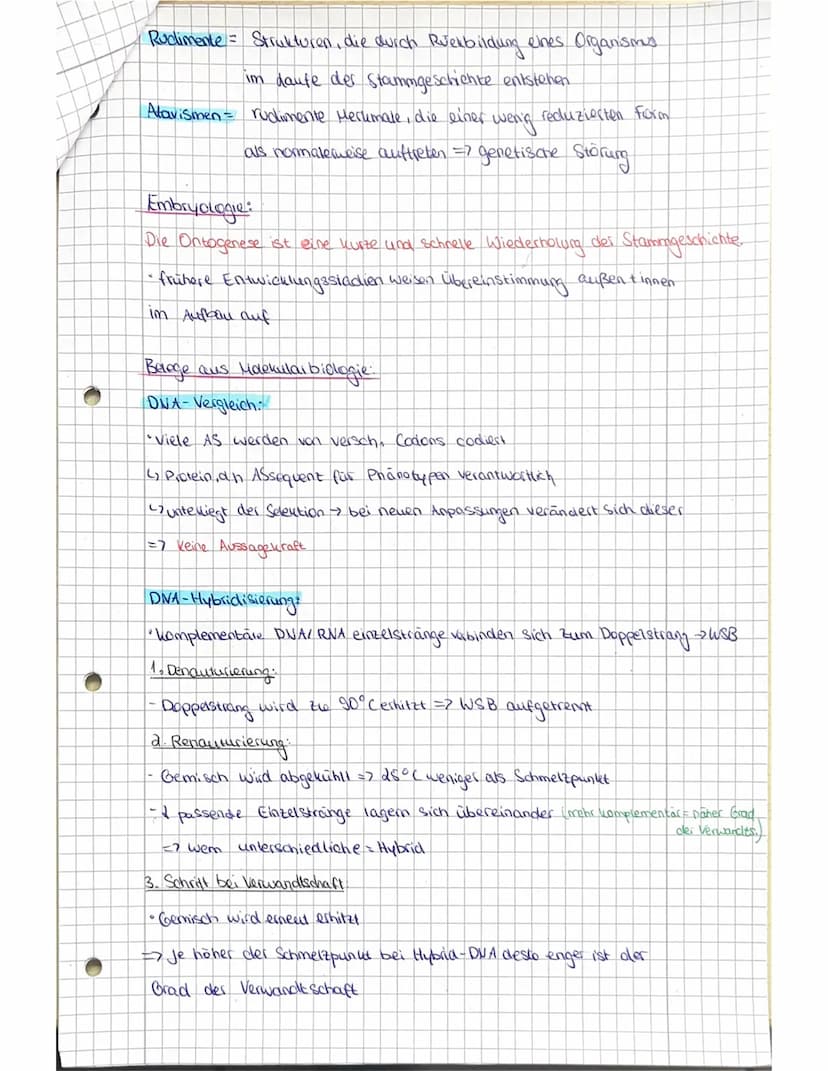 Rudimente = Strukturen, die durch Rückbildung eines Organismus
im Laufe der Stammgeschichte entstehen
Atavismen = rudimente Merkmale, die einer wenig reduzierten Form
als normalerweise auftreten => genetische Störung
Embryologie:
Die Ontogenese ist eine kurze und schnelle Wiederholung der Stammgeschichte.
· frühere Entwicklungsstadien weisen Übereinstimmung außen + innen
im Aufbau auf
Belege aus Molekularbiologie:
DNA-Vergleich:
· Viele AS werden von versch. Codons codiert
↳ Protein, d.h. ASsequent für Phänotypen verantwortlich
↳ unterliegt der Selektion → bei neuen Anpassungen verändert sich dieser
=> keine Aussagekraft
DNA-Hybridisierung:
· komplementäre DNA/RNA einzelstränge verbinden sich zum Doppelstrang → WSB
1. Denaturierung:
- Doppelstrang wird zu 90°C erhitzt => WSB aufgetrennt
2. Renaturierung:
- Gemisch wird abgekühlt => 25°C weniger als Schmelzpunkt
- passende Einzelstränge lagern sich übereinander (mehr komplementär = näher Grad
der Verwandts.)
=> wenn unterschiedliche = Hybrid
3. Schritt bei Verwandtschaft:
· Gemisch wird erneut erhitzt
=> Je höher der Schmelzpunkt bei Hybrid-DNA desto enger ist der
Grad der Verwandtschaft